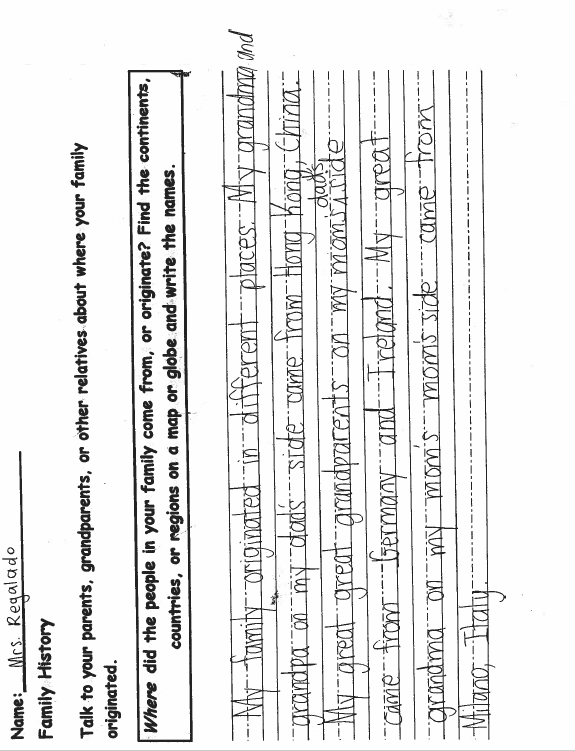 Name: Mrs. Regalado
Family History
Talk to your parents, grandparents, or other relatives about where your family
originated.
Where did the people in your family come from, or originate? Find the continents,
countries, or regions on a map or globe and write the names.
My family originated in different places. My grandma and
grandpa on my dad's side came from Hong Kong, China.
dad's
My great great grandparents on my mom's side
came from Germany and Ireland. My great
grandma on my mom's mom's side came from
Milano, Italy.